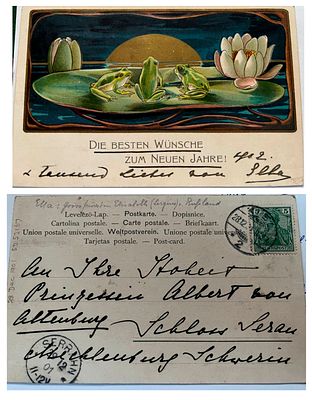 DIE BESTEN WÜNSCHE
ZUM NEUEN JAHRE! 1902.
& tausend Liebes von Ella
Ella = Grossfürstin Elisabeth (Sergius), Rußland
Levelező-Lap. — Postkarte. — Dopisnice.
Cartolina postale. — Carte postale. — Briefkaart.
Union postale universelle. — Weltpostverein. — Unione postale universale.
Tarjetas postale. — Post-card.
An Ihre Hoheit
Prinzessin Albert von
Altenburg
Schloss Serran
Mecklenburg Schwerin
5
SERRAHN
12
01
11-12V